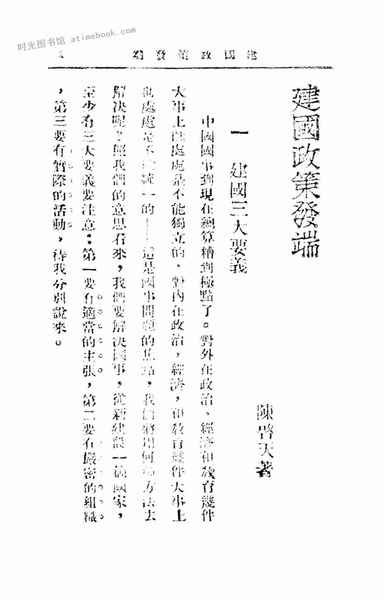 时光图书馆 atimebook.com
建國政策發端
建國政策發端
陳啓天著
一 建國三大要義
中國國事到現在總算糟到極點了。對外在政治、經濟和敎育幾件
大事上 處處是不能獨立的，對內在政治，經濟，和敎育幾件大事上
處處是不 一的 這是國事問題的焦點，我們 用何 方法去
解決呢？照我們的意思看來，我們要解決國事，從新建設一個國家，
至少有三大要義要注意：第一要有適當的主張，第二要有嚴密的組織
，第三要有實際的活動，待我分別說來。